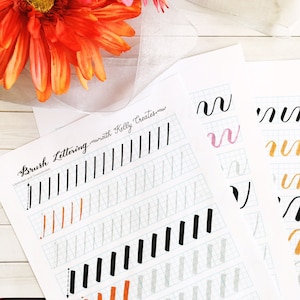 Brush Lettering with Kelly Creates